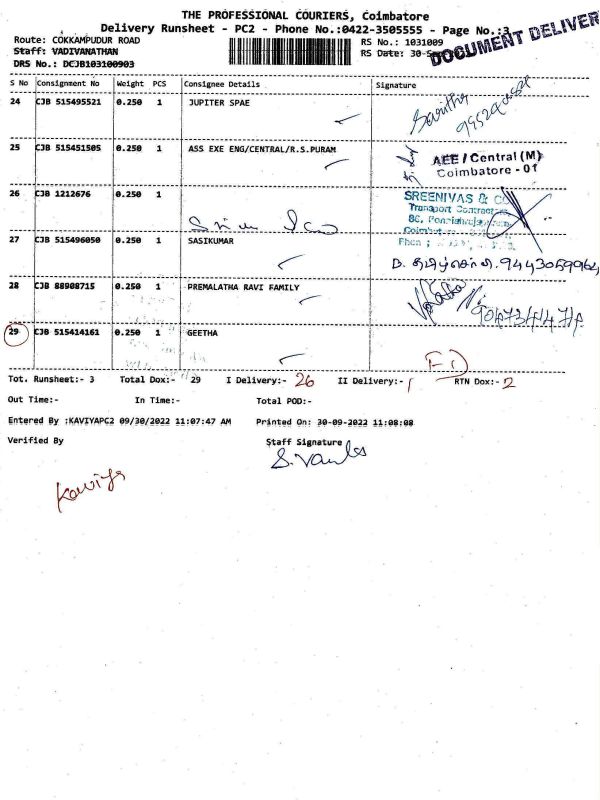 THE PROFESSIONAL COURIERS, Coimbatore
Delivery Runsheet - PC2 - Phone No.:0422-3505555 - Page No.:3
DOCUMENT DELIVER
Route: COKKAMPUDUR ROAD RS No.: 1031009
Staff: VADIVANATHAN RS Date: 30-Sep
DRS No.: DCJB103100903
S No Consignment No Weight PCS Consignee Details Signature
24 CJB 515495521 0.250 1 JUPITER SPAE
Savitha
25 CJB 515451505 0.250 1 ASS EXE ENG/CENTRAL/R.S.PURAM
AEE / Central (M)
Coimbatore - 01
26 CJB 1212676 0.250 1
SREENIVAS & CO
Transport Contractors,
27 CJB 515496050 0.250 1 SASIKUMAR
28 CJB 88908715 0.250 1 PREMALATHA RAVI FAMILY
29 CJB 515414161 0.250 1 GEETHA
Tot. Runsheet:- 3 Total Dox:- 29 I Delivery:- 26 II Delivery:- 1 RTN Dox:- 2
Out Time:- In Time:- Total POD:-
Entered By :KAVIYAPC2 09/30/2022 11:07:47 AM Printed On: 30-09-2022 11:08:08
Verified By Staff Signature
Kaviya